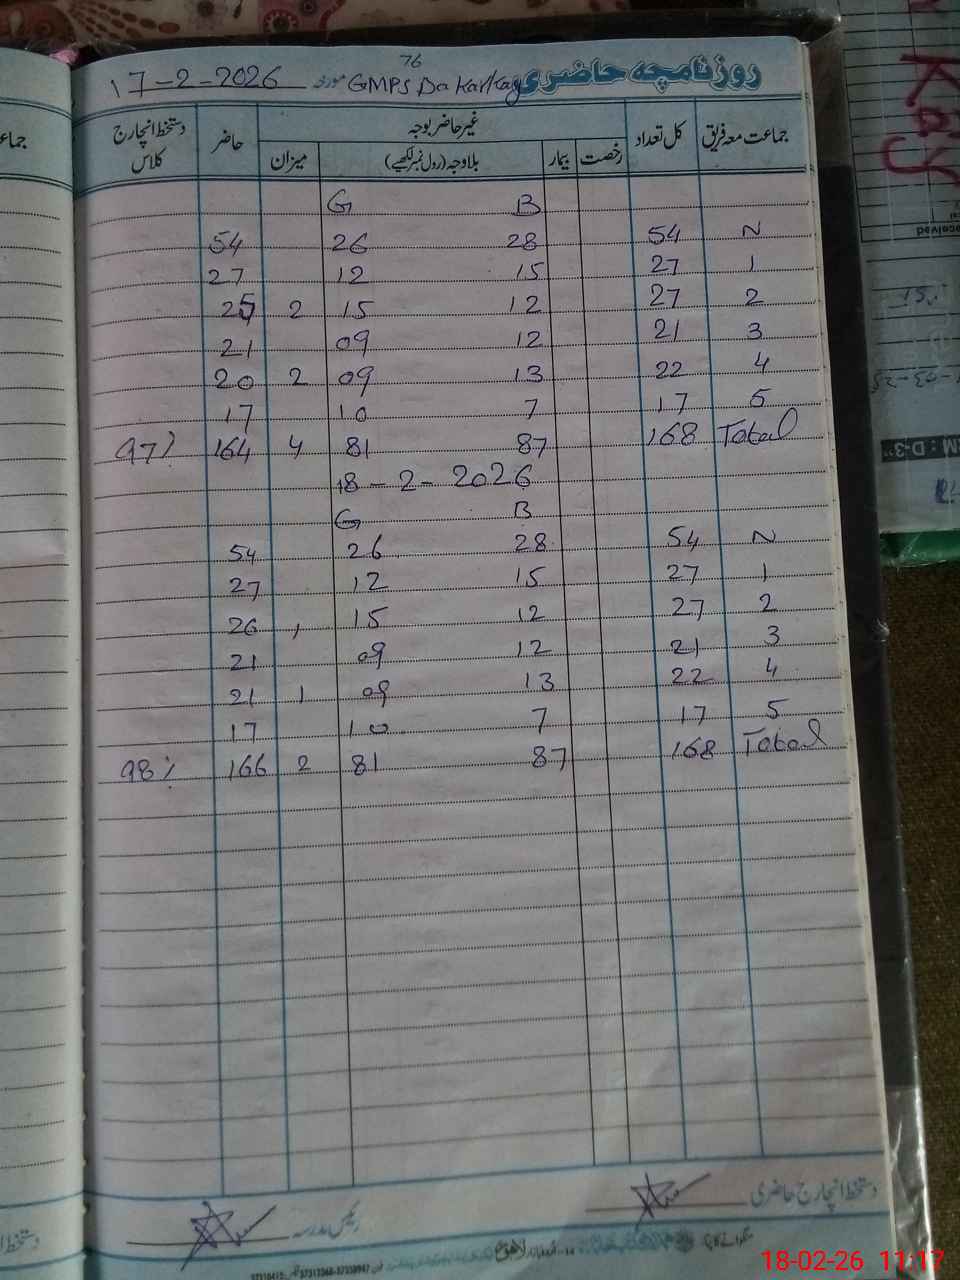 76
روزنامچہ حاضری GMPS Da Karkay مورخہ 17-2-2026
جماعت معہ فریق کل تعداد غیر حاضر بوجہ حاضر دستخط انچارج کلاس
رخصت بیمار بلاوجہ (رول نمبر لکھیے) میزان
B G
N 54 28 26 54
1 27 15 12 27
2 27 12 15 2 25
3 21 12 09 21
4 22 13 09 2 20
5 17 7 10 17
Total 168 87 81 4 164 97%
18-2-2026
B G
N 54 28 26 54
1 27 15 12 27
2 27 12 15 1 26
3 21 12 09 21
4 22 13 09 1 21
5 17 7 10 17
Total 168 87 81 2 166 98%
دستخط انچارج حاضری رئیس مدرسہ
لاہور
18-02-26 11:17